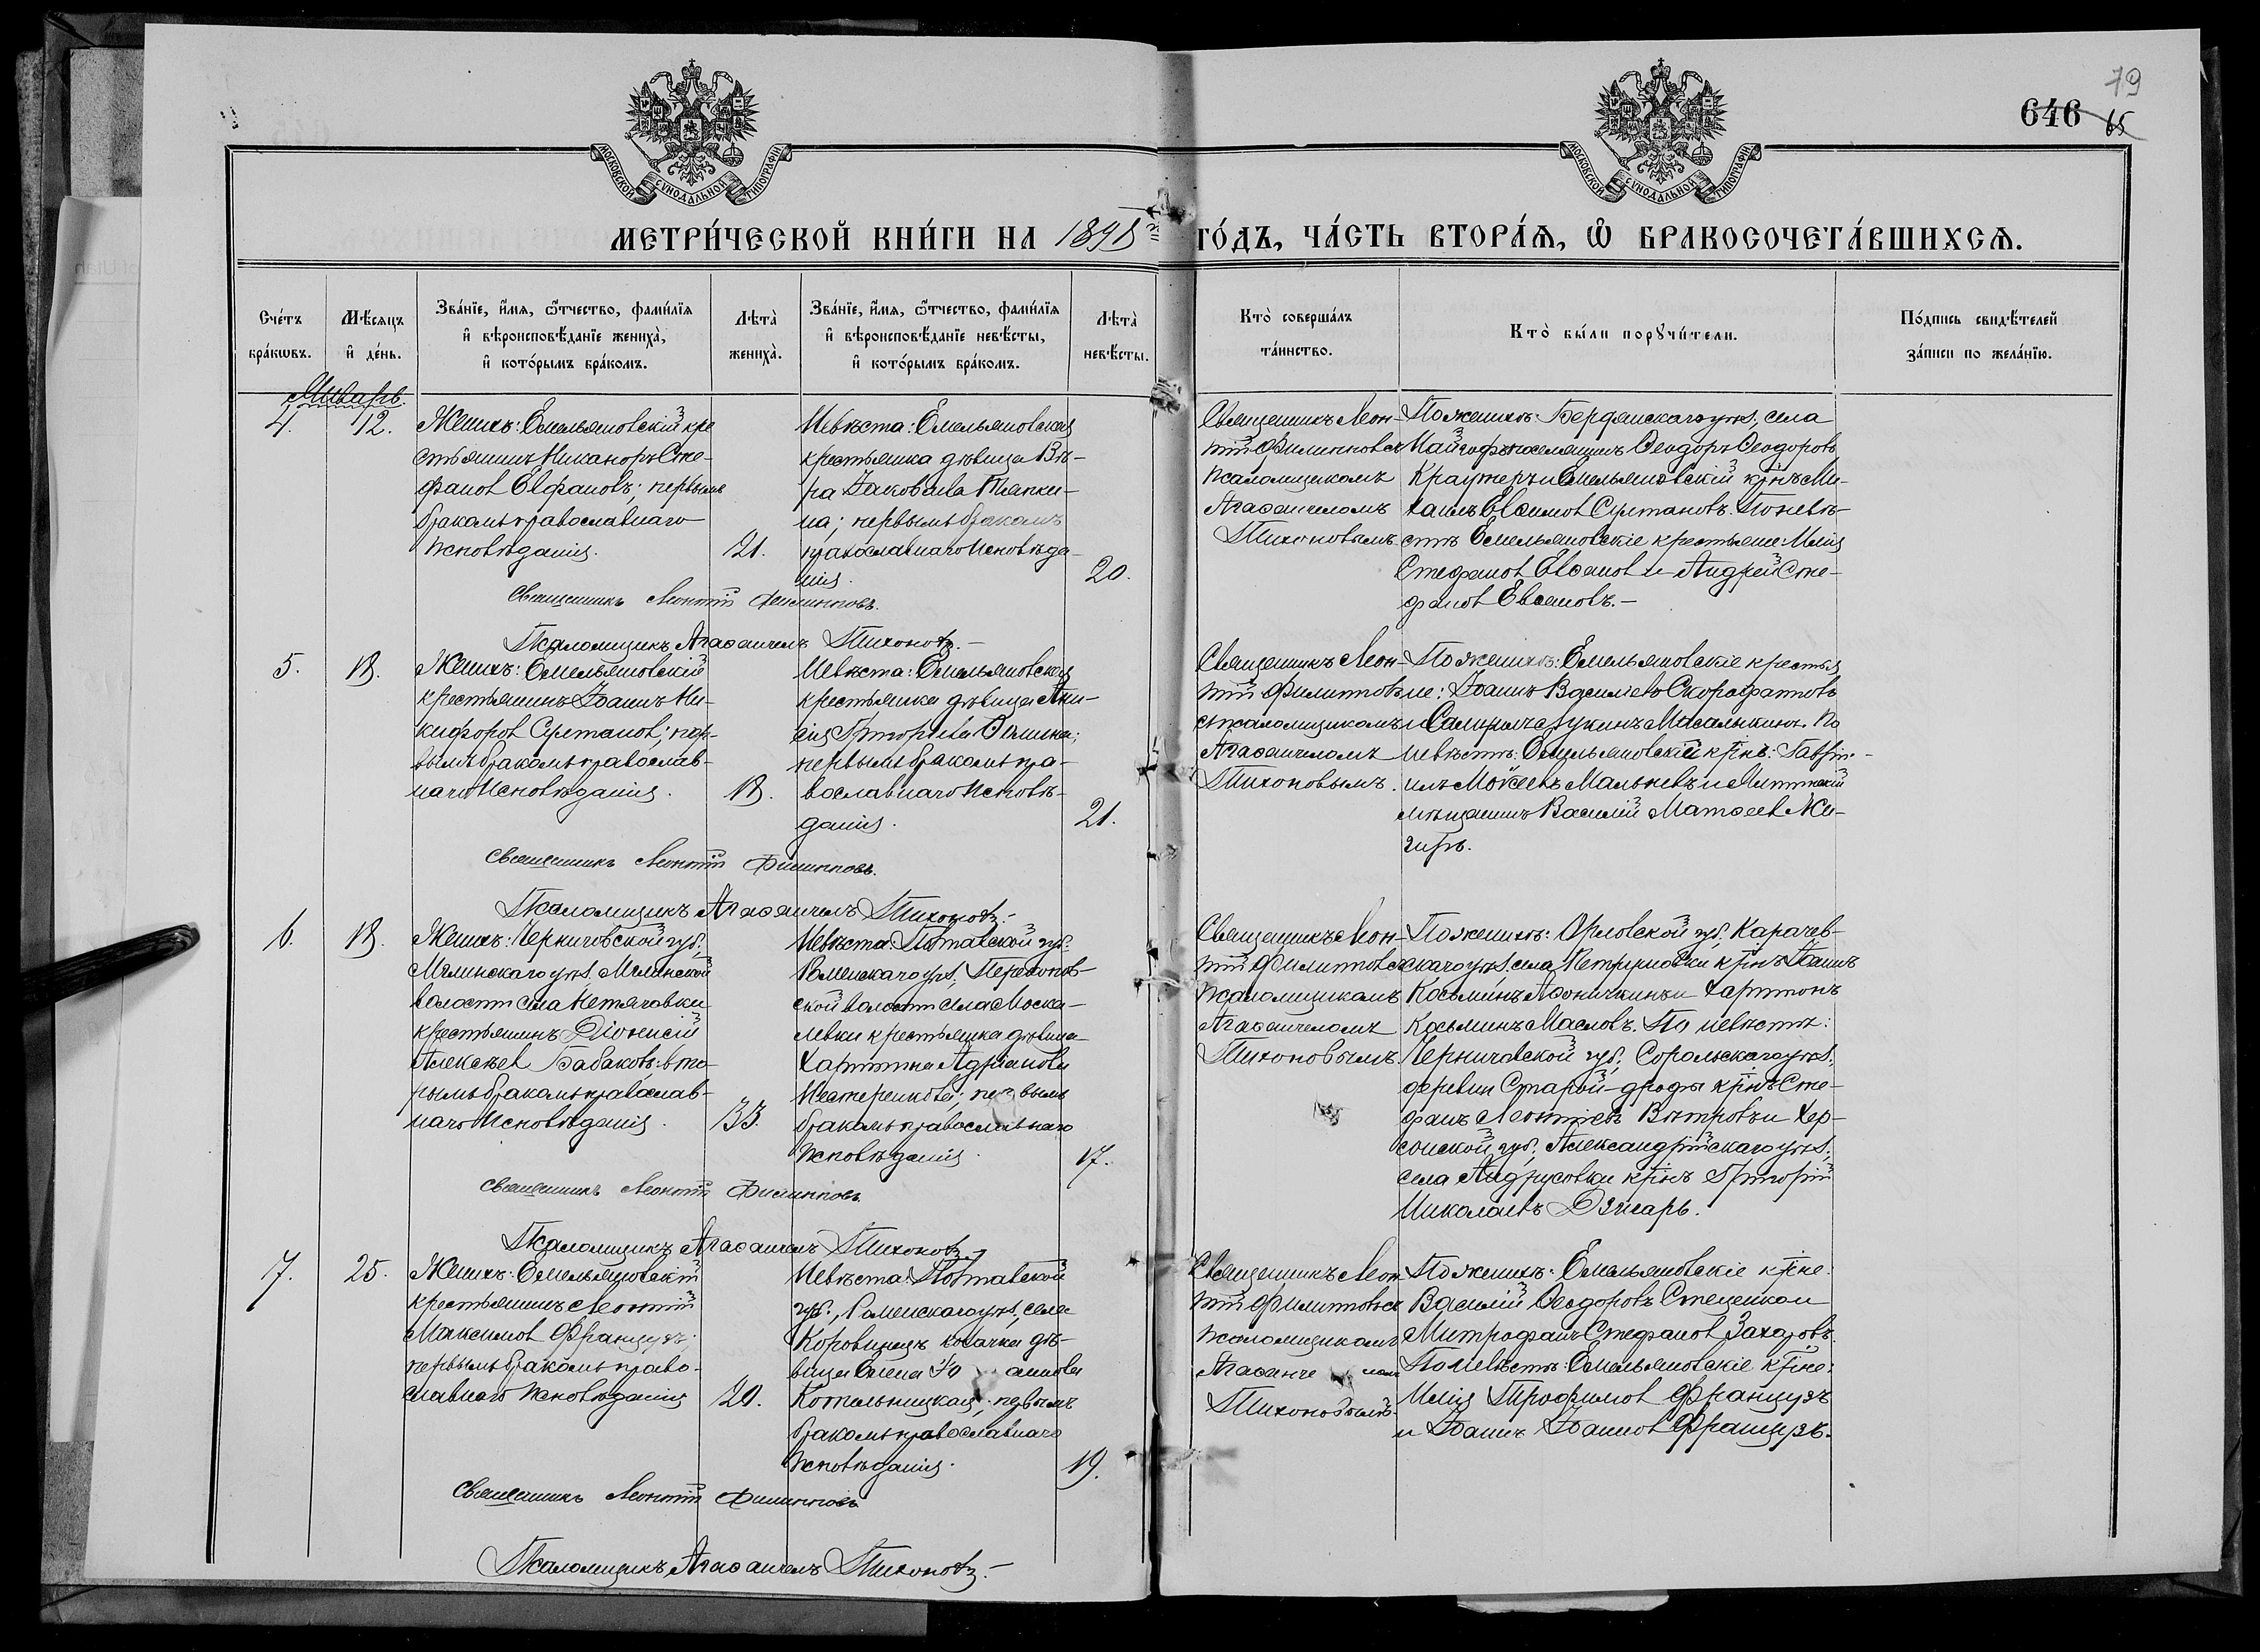 79
646 65
МОСКОВСКОЙ СУНОДАЛЬНОЙ ТИПОГРАФІИ
МОСКОВСКОЙ СУНОДАЛЬНОЙ ТИПОГРАФІИ
МЕТРИ́ЧЕСКОЙ КНИ́ГИ НА 1898 ГО́ДЪ, ЧА́СТЬ ВТОРА́Я, Ѡ БРАКОСОЧЕТА́ВШИХСЯ.
Сче́тъ бра́кѡвъ.
Мѣ́сяцъ и҆ де́нь.
Зва́нїе, и҆́мя, ѻ҆́тчество, фами́лїя и҆ вѣроисповѣ́данїе жениха̀, и҆ кото́рымъ бра́комъ.
Лѣта̀ жениха̀.
Зва́нїе, и҆́мя, ѻ҆́тчество, фами́лїя и҆ вѣроисповѣ́данїе невѣ́сты, и҆ кото́рымъ бра́комъ.
Лѣта̀ невѣ́сты.
Кто̀ соверша́лъ та́инство.
Кто̀ бы́ли порꙋчи́тели.
По́дпись свидѣ́телей за́писи по жела́нїю.
Январь.
4.
12.
Женихъ: Емельяновскій кре
стьянинъ Никаноръ Сте-
фановъ Евфановъ; первымъ
бракомъ православнаго
исповѣданія.
21.
Невѣста: Емельяновская
крестьянка дѣвица Вѣ-
ра Іаковлева Тяпки-
на; первымъ бракомъ
православнаго исповѣда-
нія.
20.
Священникъ Леон-
тій Филипповъ съ
псаломщикомъ
Агаѳангеломъ
Тихоновымъ
По женихѣ: Бердянскаго уѣз., села
поселянинъ Ѳеодоръ Ѳеодоровъ
Краутеръ и Емельяновскій кр-нъ Ми-
хаилъ Евѳимовъ Султановъ. По невѣ-
стѣ Емельяновскіе крестьяне: Илія
Стефановъ Евѳановъ и Андрей Сте-
фановъ Евѳановъ.-
Священникъ Леонтій Филипповъ.
Псаломщикъ Агаѳангелъ Тихоновъ.-
5.
18.
Женихъ: Емельяновскій
крестьянинъ Іоаннъ Ни-
кифоровъ Султановъ; пер-
вымъ бракомъ православ-
наго исповѣданія.
18.
Невѣста: Емельяновская
крестьянка дѣвица
Григоріева
первымъ бракомъ пра-
вославнаго исповѣ-
данія.
21.
Священникъ Леон-
тій Филипповъ
съ псаломщикомъ
Агаѳангеломъ
Тихоновымъ.
По женихѣ: Емельяновскіе крестья
не: Іоаннъ Василіевъ Скорофатовъ
и Лукинъ Масалыкинъ. По
невѣстѣ: Емельяновскій кр-нъ: Гаврі-
илъ Моѵсеевъ Мальневъ и
мѣщанинъ Василій Матѳеевъ Жи-
гирь.
Священникъ Леонтій Филипповъ.
Псаломщикъ Агаѳангелъ Тихоновъ.-
6.
18.
Женихъ: Черниговской губ.,
Мглинскаго уѣз. Мглинской
волости села Нетяговки
крестьянинъ Діонисій
Алексѣевъ Бабаковъ; вто-
рымъ бракомъ православ-
наго исповѣданія.
33.
Невѣста: Полтавской губ.
Роменскаго уѣз.,
ской волости села Моска-
левки крестьянка дѣвица
Харитина Адріанова
Нестеренкова; первымъ
бракомъ православнаго
исповѣданія.
17.
Священникъ Леон-
тій Филипповъ съ
псаломщикомъ
Агаѳангеломъ
Тихоновымъ
По женихѣ: Орловской губ., Карачев-
скаго уѣз. села кр-нъ
Косьминъ Аѳоничкинъ и Харитонъ
Косьминъ Масловъ. По невѣстѣ:
Черниговской губ., уѣз.,
деревни Старой- кр-нъ Сте-
фанъ Леонтіевъ Вѣтровъ и Хер-
сонской губ., Александрійскаго уѣз.,
села Андрусовки кр-нъ Григорій
Николаевъ Дзигарь.
Священникъ Леонтій Филипповъ
Псаломщикъ Агаѳангелъ Тихоновъ.-
7.
25.
Женихъ: Емельяновскій
крестьянинъ Леонтій
Максимовъ Французъ;
первымъ бракомъ право-
славнаго исповѣданія
20.
Невѣста: Полтавской
губ., Роменскаго уѣз., села
Коровинецъ козачка дѣ-
вица Елена
Котельницкая; первымъ
бракомъ православнаго
исповѣданія.
19.
Священникъ Леон
тій Филипповъ съ
псаломщикомъ
Тихоновымъ.
По женихѣ: Емельяновскіе кр-не:
Василій Ѳеодоровъ Стеценко и
Митрофанъ Стефановъ Захаровъ.
По невѣстѣ: Емельяновскіе кр-не:
Илія Трофимовъ Французъ
и Іоаннъ Іоанновъ Французъ.
Священникъ Леонтій Филипповъ
Псаломщикъ Агаѳангелъ Тихоновъ.-